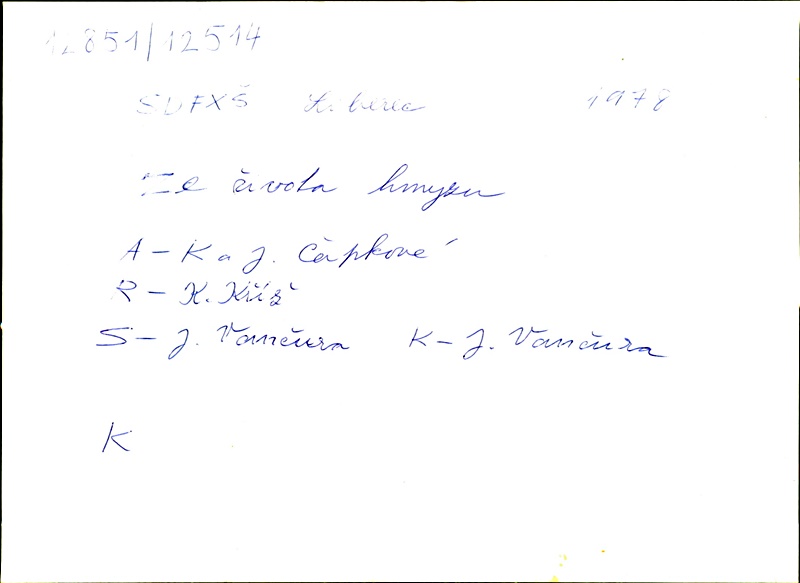 12851/12514
SDFXŠ Liberec 1978
Ze života hmyzu
A - K a J. Čapkové
R - K. Kříž
S - J. Vančura K - J. Vančura
K